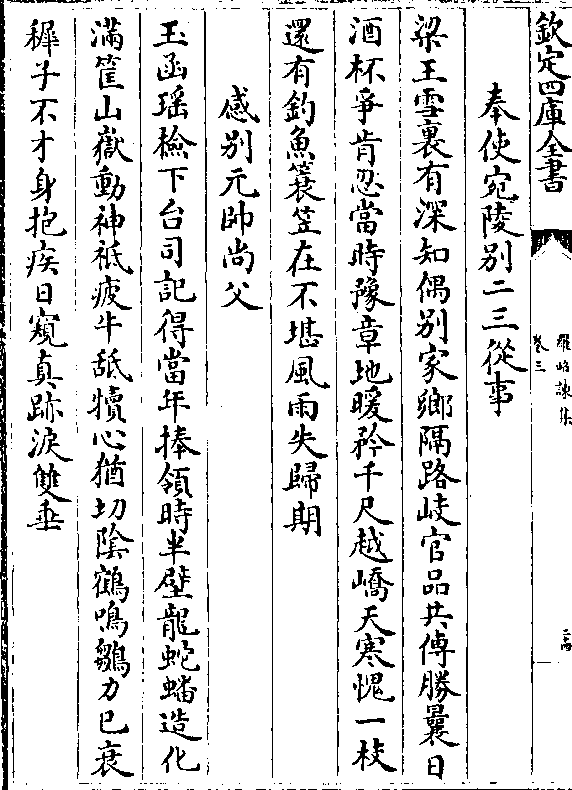 欽定四庫全書
羅昭諫集
卷三
二十四
奉使宛陵別二三從事
梁王雪裏有深知偶別家鄉隔路歧官品共傅勝曩日
酒杯爭肯忍當時豫章地暖矜千尺越嶠天寒愧一枝
還有釣魚蓑笠在不堪風雨失歸期
感別元帥尚父
玉函瑤檢下台司記得當年捧領時半壁龍蛇蟠造化
滿筐山嶽動神祗疲牛舐犢心猶切陰鶴鳴雛力已衰
穉子不才身抱疾日窺真跡淚雙垂